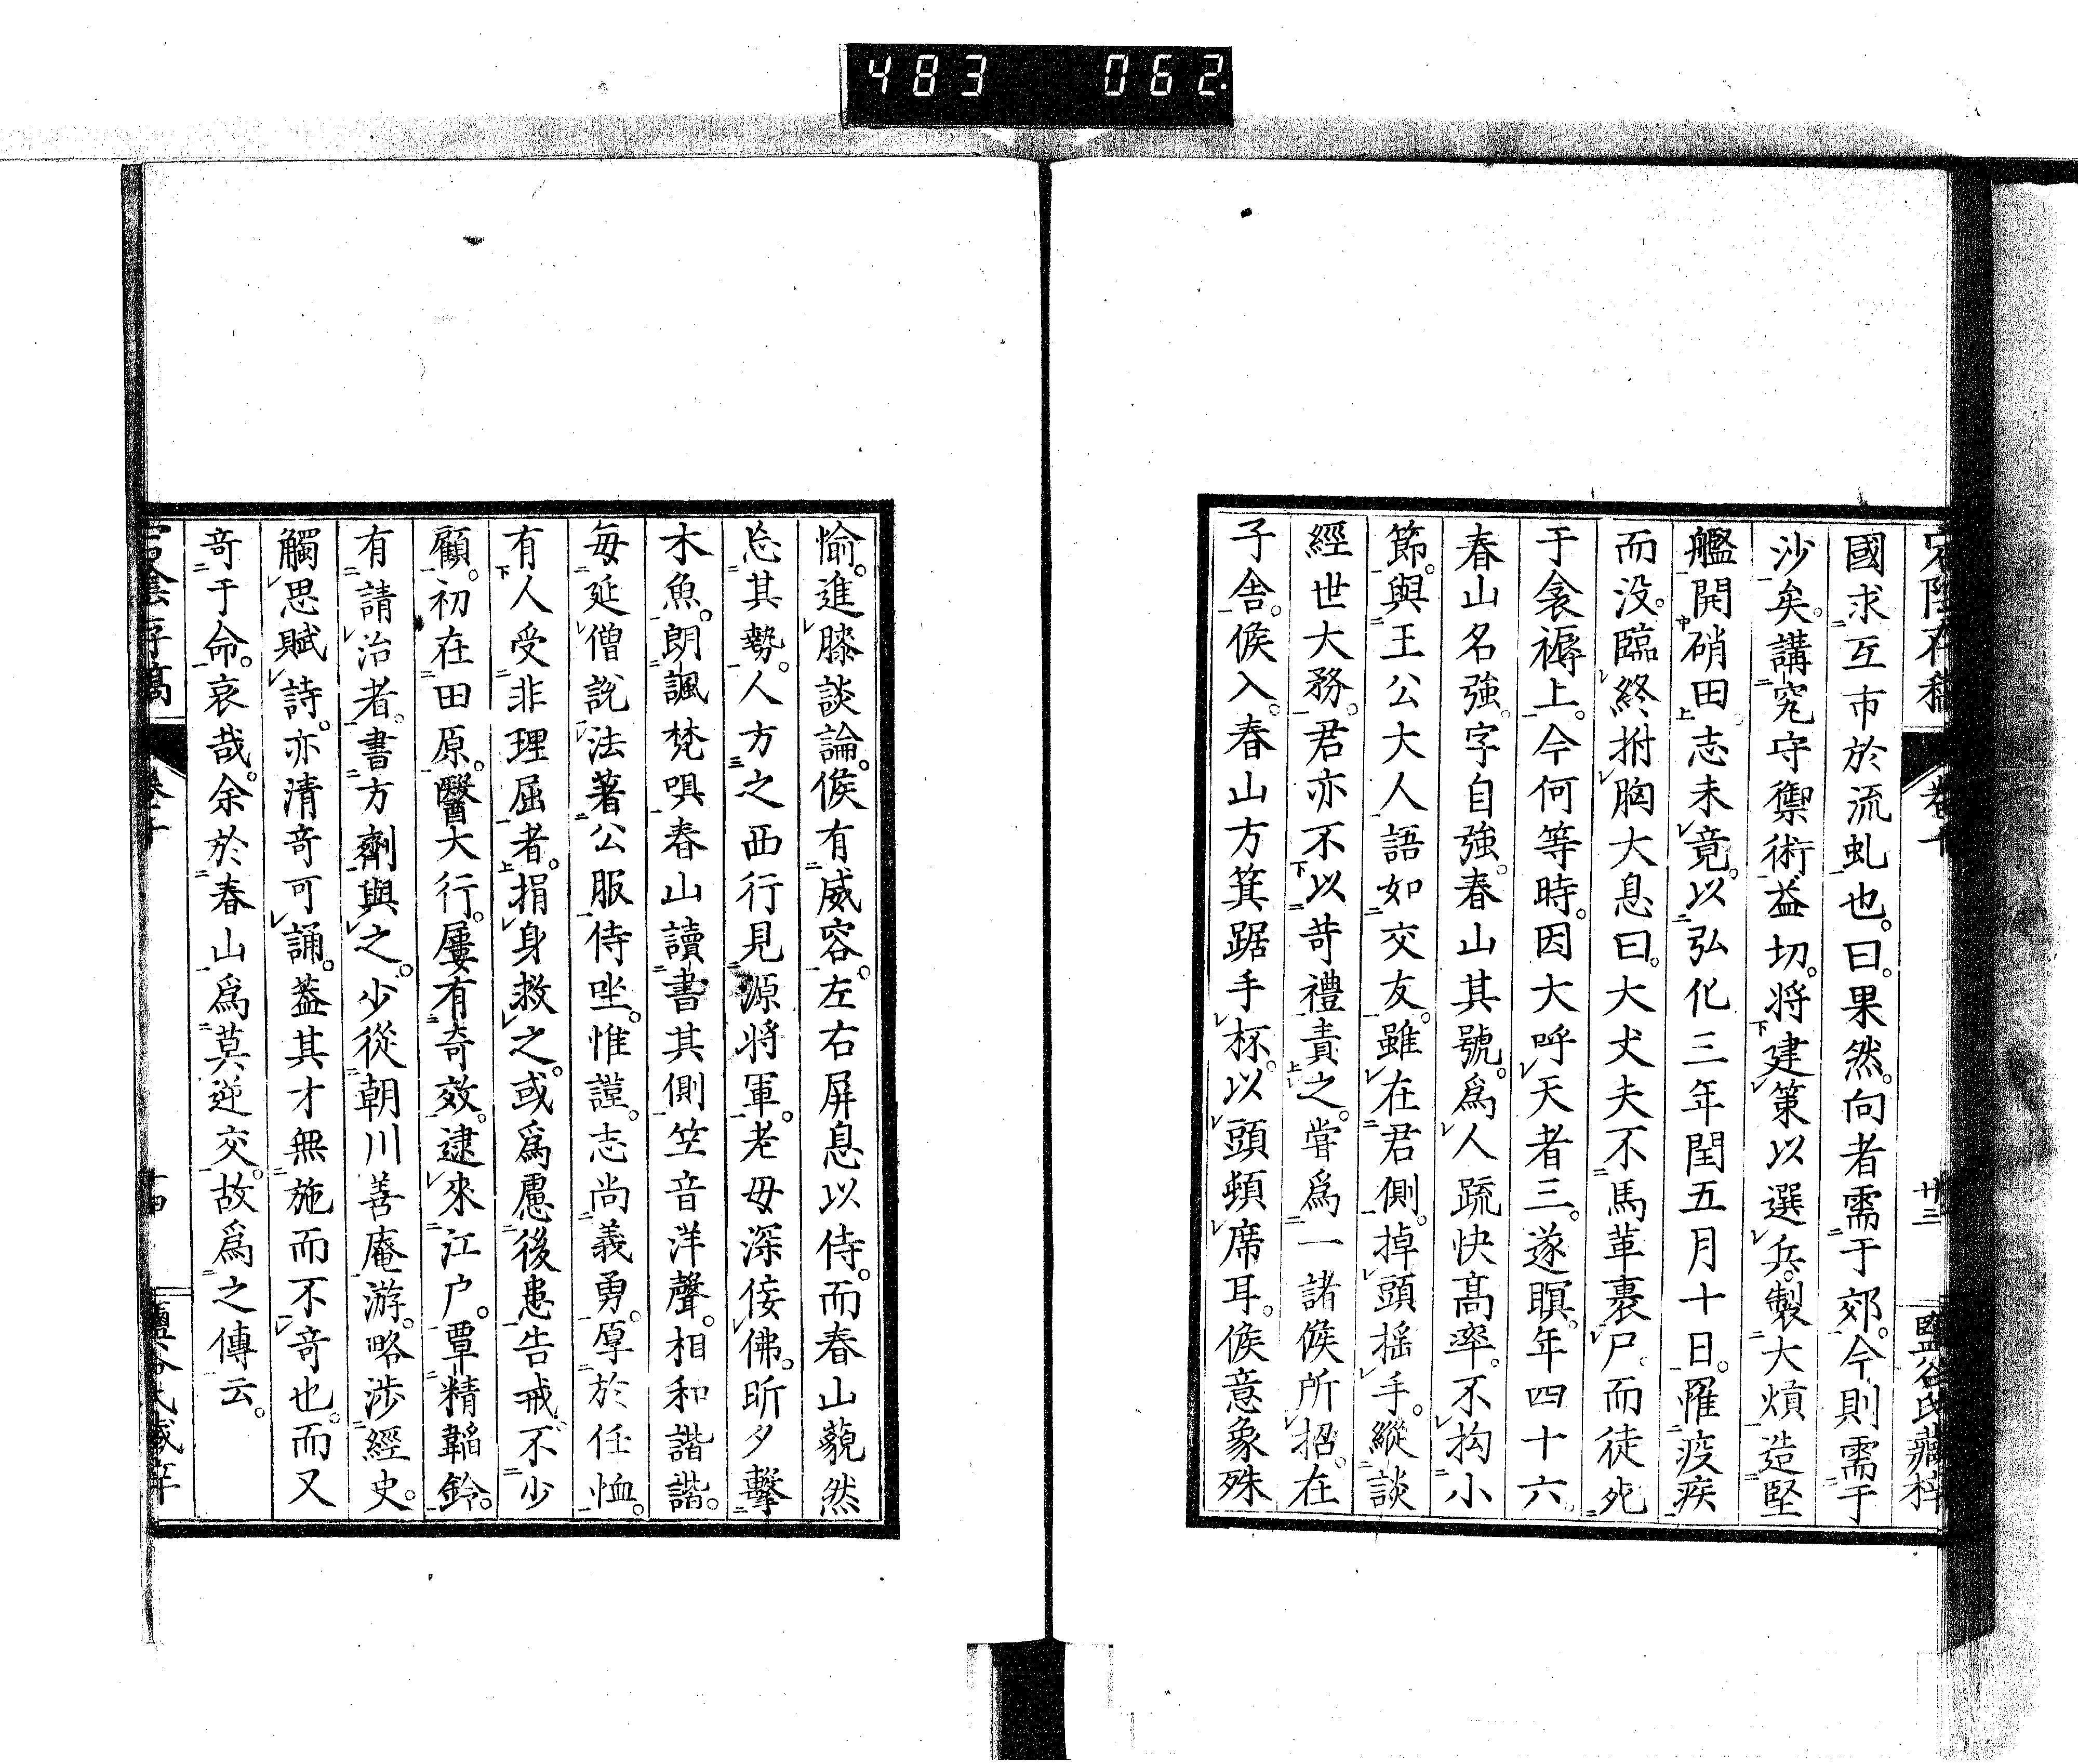 483 062
宕陰存稿 卷十 廿三 鹽谷氏藏梓
國求互市於流虬也。曰。果然。向者需于郊。今則需于
沙矣。講究守禦術益切。將建策以選兵。製大熕造堅
艦開硝田。志未竟。以弘化三年閏五月十日。罹疫疾
而没。臨終拊胸大息曰。大丈夫不馬革裹尸。而徒死
于衾褥上。今何等時。因大呼天者三。遂瞑。年四十六。
春山名強。字自強。春山其號。爲人疏快高率。不拘小
節。與王公大人語如交友。雖在君側。掉頭揺手。縱談
經世大務。君亦不以苛禮責之。甞爲一諸侯所招。在
子舍。侯入。春山方箕踞手杯。以頭頻席耳。侯意象殊
愉。進膝談論。侯有威容。左右屏息以侍。而春山藐然
忘其勢。人方之西行見源將軍。老毋深倿佛。昕夕擊
木魚。朗諷梵唄。春山讀書其側。竺音洋聲。相和諧諧。
毎延僧説法著公服侍坐。惟謹。志尚義勇。厚於任恤。
有人受非理屈者。捐身救之。或爲慮後患告戒。不少
顧。初在田原。醫大行。屢有奇效。逮來江户。覃精韜鈐。
有請治者。書方劑與之。少從朝川善庵游。略渉經史。
觸思賦詩。亦清奇可誦。葢其才無施而不奇也。而又
奇于命。哀哉。余於春山爲莫逆交。故爲之傳云。
宕陰存稿 卷十 鹽谷氏藏梓